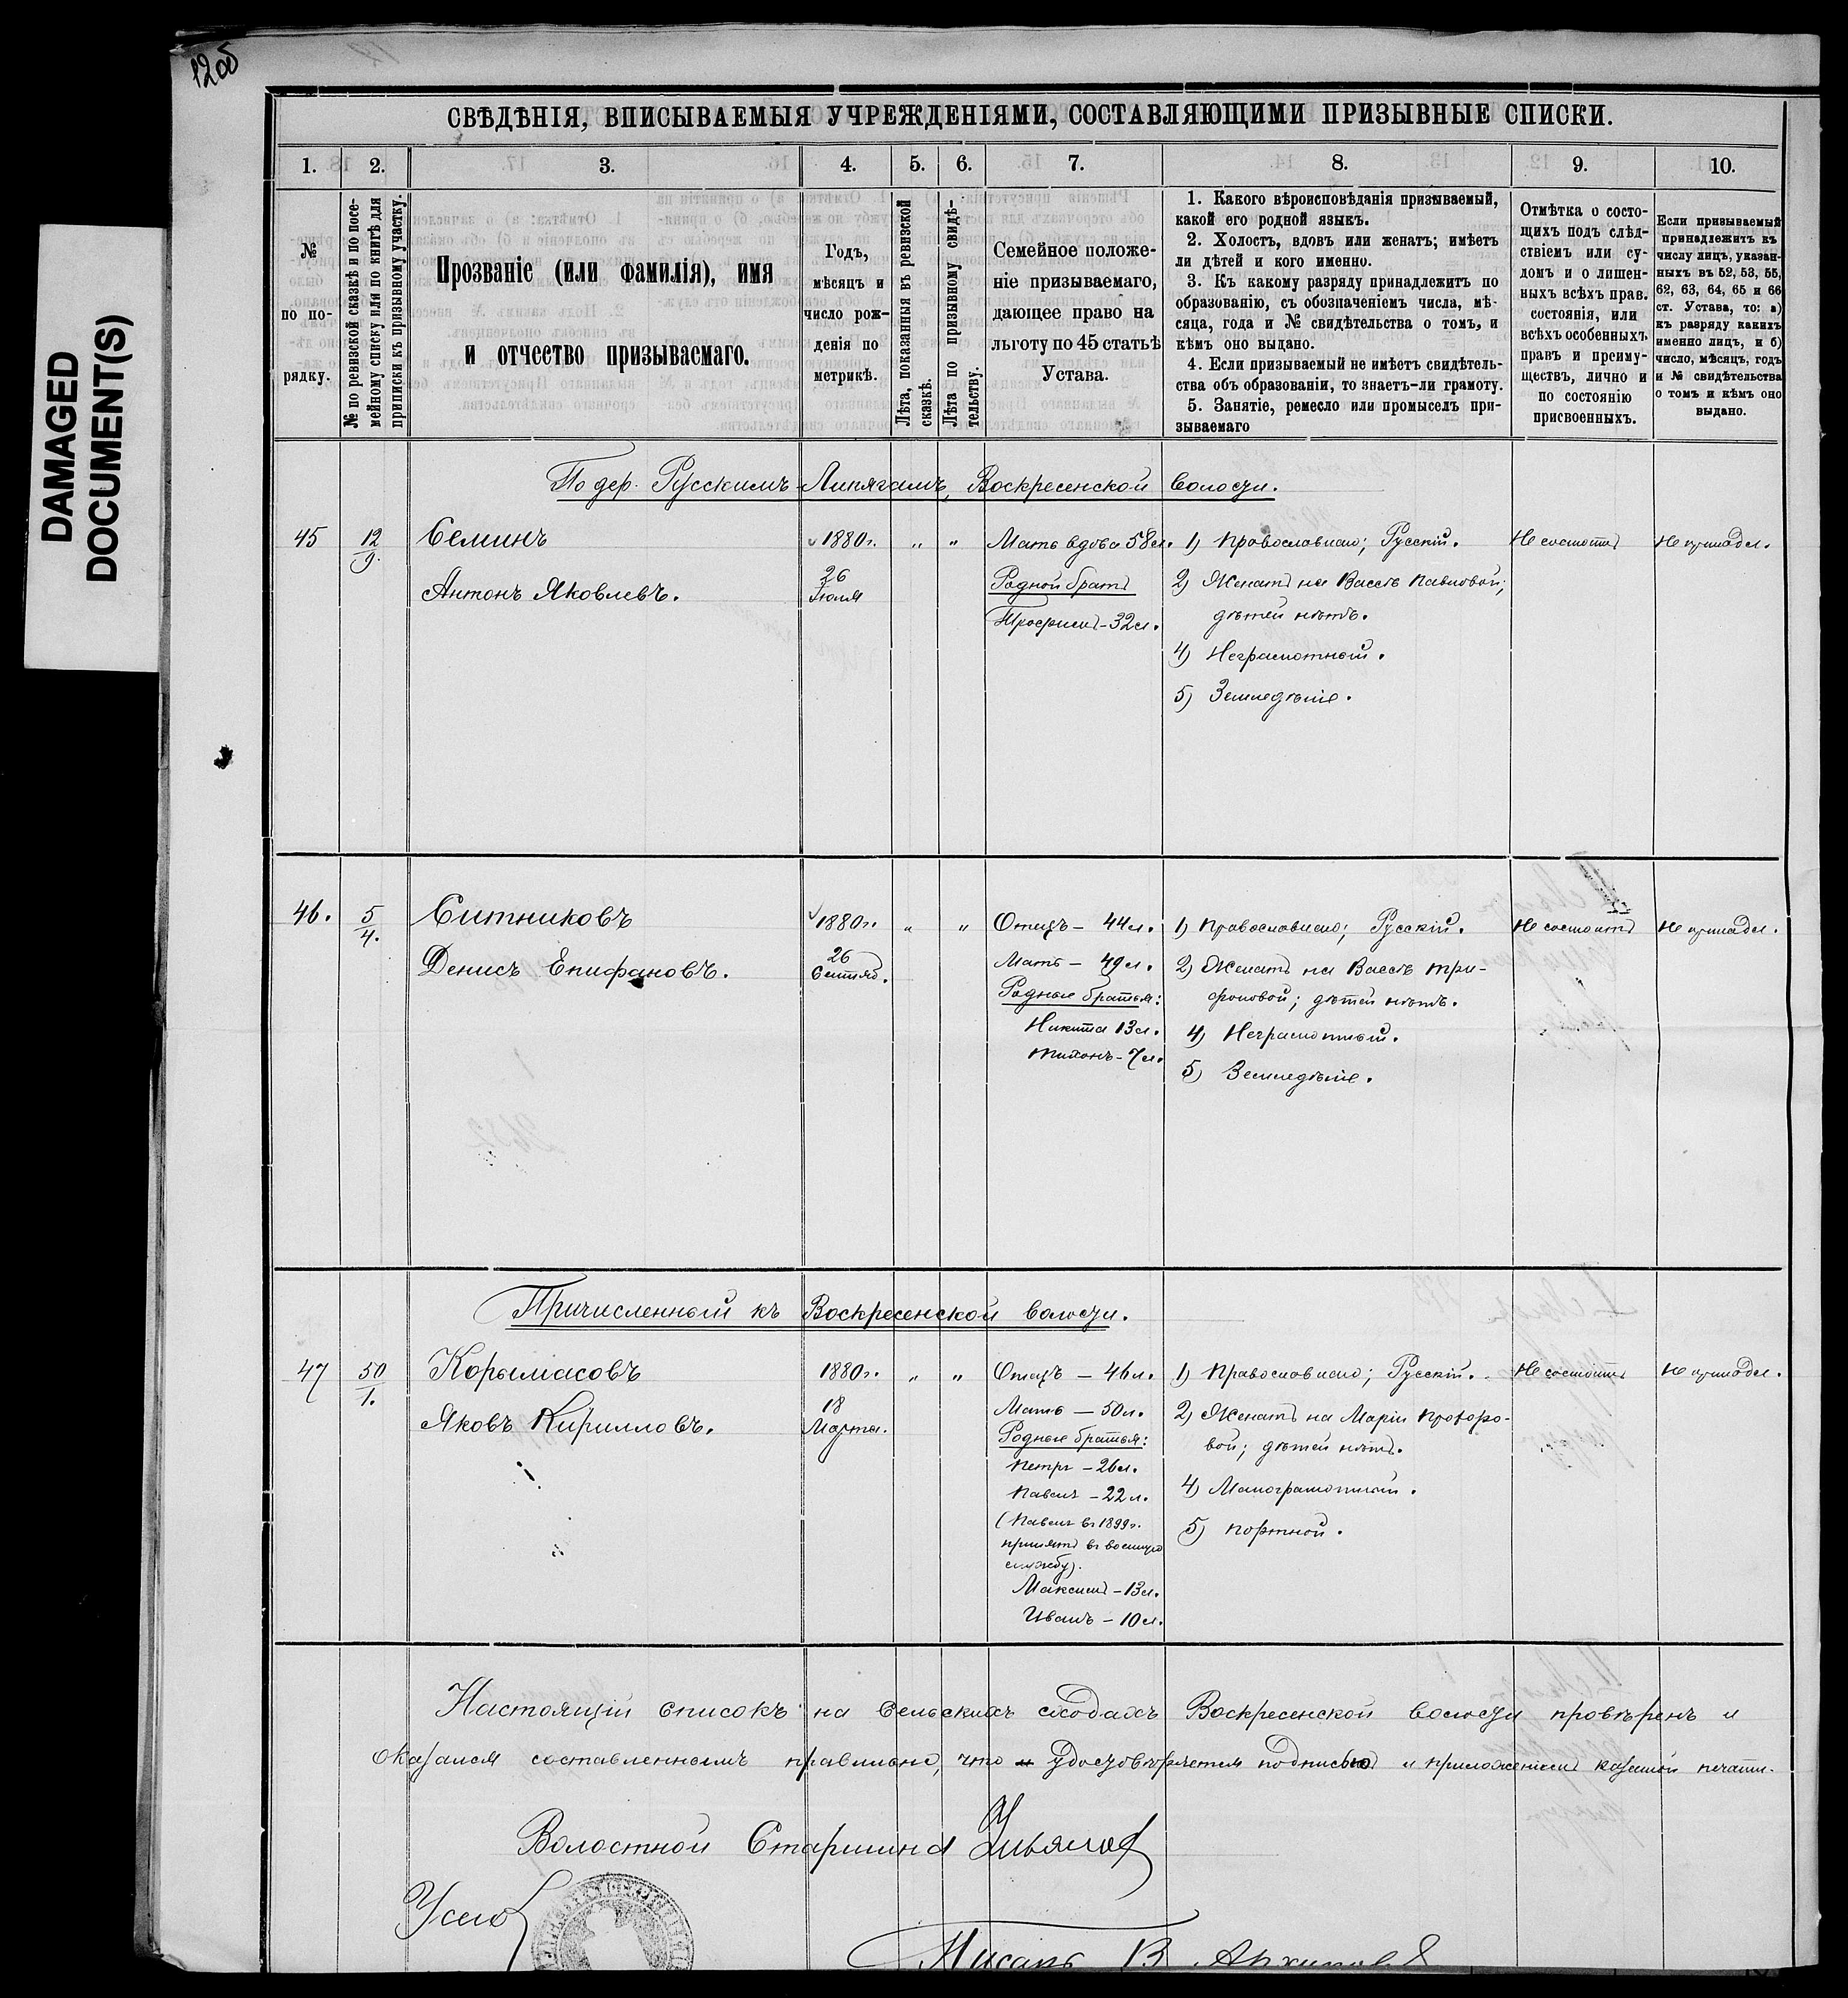 12об
DAMAGED
DOCUMENT(S)
СВѢДѢНІЯ, ВПИСЫВАЕМЫЯ УЧРЕЖДЕНІЯМИ, СОСТАВЛЯЮЩИМИ ПРИЗЫВНЫЕ СПИСКИ.
1. 2. 3. 4. 5. 6. 7. 8. 9. 10.
№
по по-
рядку.
№ по ревизской сказкѣ и по посе-
мейному списку или по книгѣ для
приписки къ призывному участку.
Прозваніе (или фамилія), имя
и отчество призываемаго.
Годъ,
мѣсяцъ и
число рож-
денія по
метрикѣ.
Лѣта, показанныя въ ревизской
сказкѣ.
Лѣта по призывному свидѣ-
тельству.
Семейное положе-
ніе призываемаго,
дающее право на
льготу по 45 статьѣ
Устава.
1. Какого вѣроисповѣданія призываемый,
какой его родной языкъ.
2. Холостъ, вдовъ или женатъ; имѣетъ
ли дѣтей и кого именно.
3. Къ какому разряду принадлежитъ по
образованію, съ обозначеніемъ числа, мѣ-
сяца, года и № свидѣтельства о томъ, и
кѣмъ оно выдано.
4. Если призываемый не имѣетъ свидѣтель-
ства объ образованіи, то знаетъ-ли грамоту.
5. Занятіе, ремесло или промыселъ при-
зываемаго
Отмѣтка о состо-
щихъ подъ слѣд-
ствіемъ или су-
домъ и о лишен-
ныхъ всѣхъ прав.
состоянія, или
всѣхъ особенныхъ
правъ и преиму-
ществъ, лично и
по состоянію
присвоенныхъ.
Если призываемый
принадлежитъ къ
числу лицъ, указан-
ныхъ въ 52, 53, 55,
62, 63, 64, 65 и 66
ст. Устава, то: а)
къ разряду какихъ
именно лицъ, и б)
число, мѣсяцъ, годъ
и № свидѣтельства
о томъ и кѣмъ оно
выдано.
По дер. Русскимъ-Липягамъ, Воскресенской волости.
45
12
9.
Семинъ
Антонъ Яковлевъ.
1880г.
26
Іюля
„ „
Мать вдова 58л.
Родной братъ
Трофимъ - 32л.
1) Православнаго; Русскій.
2) Женатъ на Вассѣ Павловой;
дѣтей нѣтъ.
4) Неграмотный.
5) Земледѣліе.
Не состоитъ
Не принадл.
46.
5
4.
Ситниковъ
Денисъ Епифановъ.
1880г.
26
Сентяб.
„ „
Отецъ - 44л.
Мать - 49л.
Родные братья:
Никита 13л.
Тихонъ - 7л.
1) Православнаго; Русскій.
2) Женатъ на Вассѣ Три-
фоновой; дѣтей нѣтъ.
4) Неграмотный.
5) Земледѣліе.
Не состоитъ
Не принадл.
Причисленный къ Воскресенской волости.
47
50
1.
Корымасовъ
Яковъ Кирилловъ.
1880г.
18
Марта.
„ „
Отецъ - 46л.
Мать - 50л.
Родные братья:
Петръ - 26л.
Павелъ - 22л.
(Павелъ въ 1899г.
принятъ въ военную
службу).
Максимъ - 13л.
Иванъ - 10л.
1) Православнаго; Русскій.
2) Женатъ на Маріи Прохоро-
вой; дѣтей нѣтъ.
4) Малограмотный.
5) Портной.
Не состоитъ
Не принадл.
Настоящій списокъ на сельскихъ сходахъ Воскресенской волости провѣренъ и
оказался составленнымъ правильно, что удостовѣряется подписью и приложеніемъ казенной печати.
Волостной Старшина Ульянов
Писарь В. Архиповъ